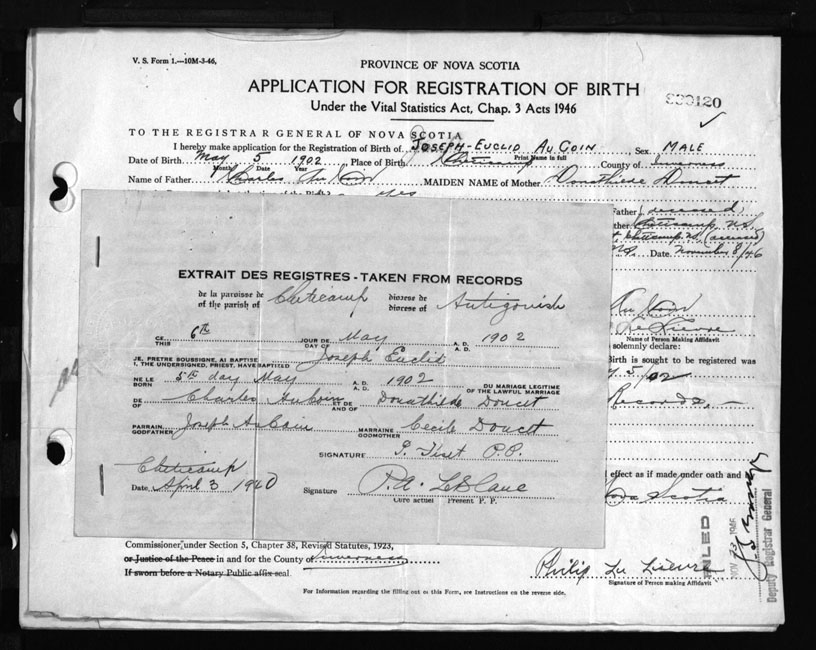 V. S. Form 1.—10M-3-46.
PROVINCE OF NOVA SCOTIA
APPLICATION FOR REGISTRATION OF BIRTH
Under the Vital Statistics Act, Chap. 3 Acts 1946
TO THE REGISTRAR GENERAL OF NOVA SCOTIA
I hereby make application for the Registration of Birth of JOSEPH-EUCLID AuCOIN, Sex MALE
Print Name in full
Date of Birth May 5 1902 Place of Birth Cheticamp County of Inverness
Month Date Year
Name of Father Charles AuCoin MAIDEN NAME of Mother Donathilde Doucet
yes
Father (deceased)
Cheticamp, N.S.
Cheticamp, N.S. (deceased)
Date November 8/46
AuCoin
Le Lievre
Name of Person Making Affidavit
solemnly declare:
Birth is sought to be registered was
5/02
Records,—
EXTRAIT DES REGISTRES - TAKEN FROM RECORDS
de la paroisse de
of the parish of Cheticamp diocese de
diocese of Antigonish
CE
THIS 6th JOUR DE
DAY OF May A. D.
A. D. 1902
JE, PRETRE SOUSSIGNE, AI BAPTISE
I, THE UNDERSIGNED, PRIEST, HAVE BAPTIZED Joseph Euclid
NE LE
BORN 5th day May A. D.
A. D. 1902 DU MARIAGE LEGITIME
OF THE LAWFUL MARRIAGE
DE
OF Charles AuCoin ET DE
AND OF Donathilde Doucet
PARRAIN
GODFATHER Joseph AuCoin MARRAINE
GODMOTHER Cecile Doucet
SIGNATURE P. Fiset P.P.
Cheticamp
Date, April 3 1940 Signature P.A. LeBlanc
Cure actuel Present P. P.
effect as if made under oath and
Nova Scotia
Commissioner, under Section 5, Chapter 38, Revised Statutes, 1923,
or Justice of the Peace in and for the County of Inverness
If sworn before a Notary Public affix seal.
Philip Le Lievre
Signature of Person making Affidavit
For Information regarding the filling out of this Form, see Instructions on the reverse side.
Deputy Registrar General